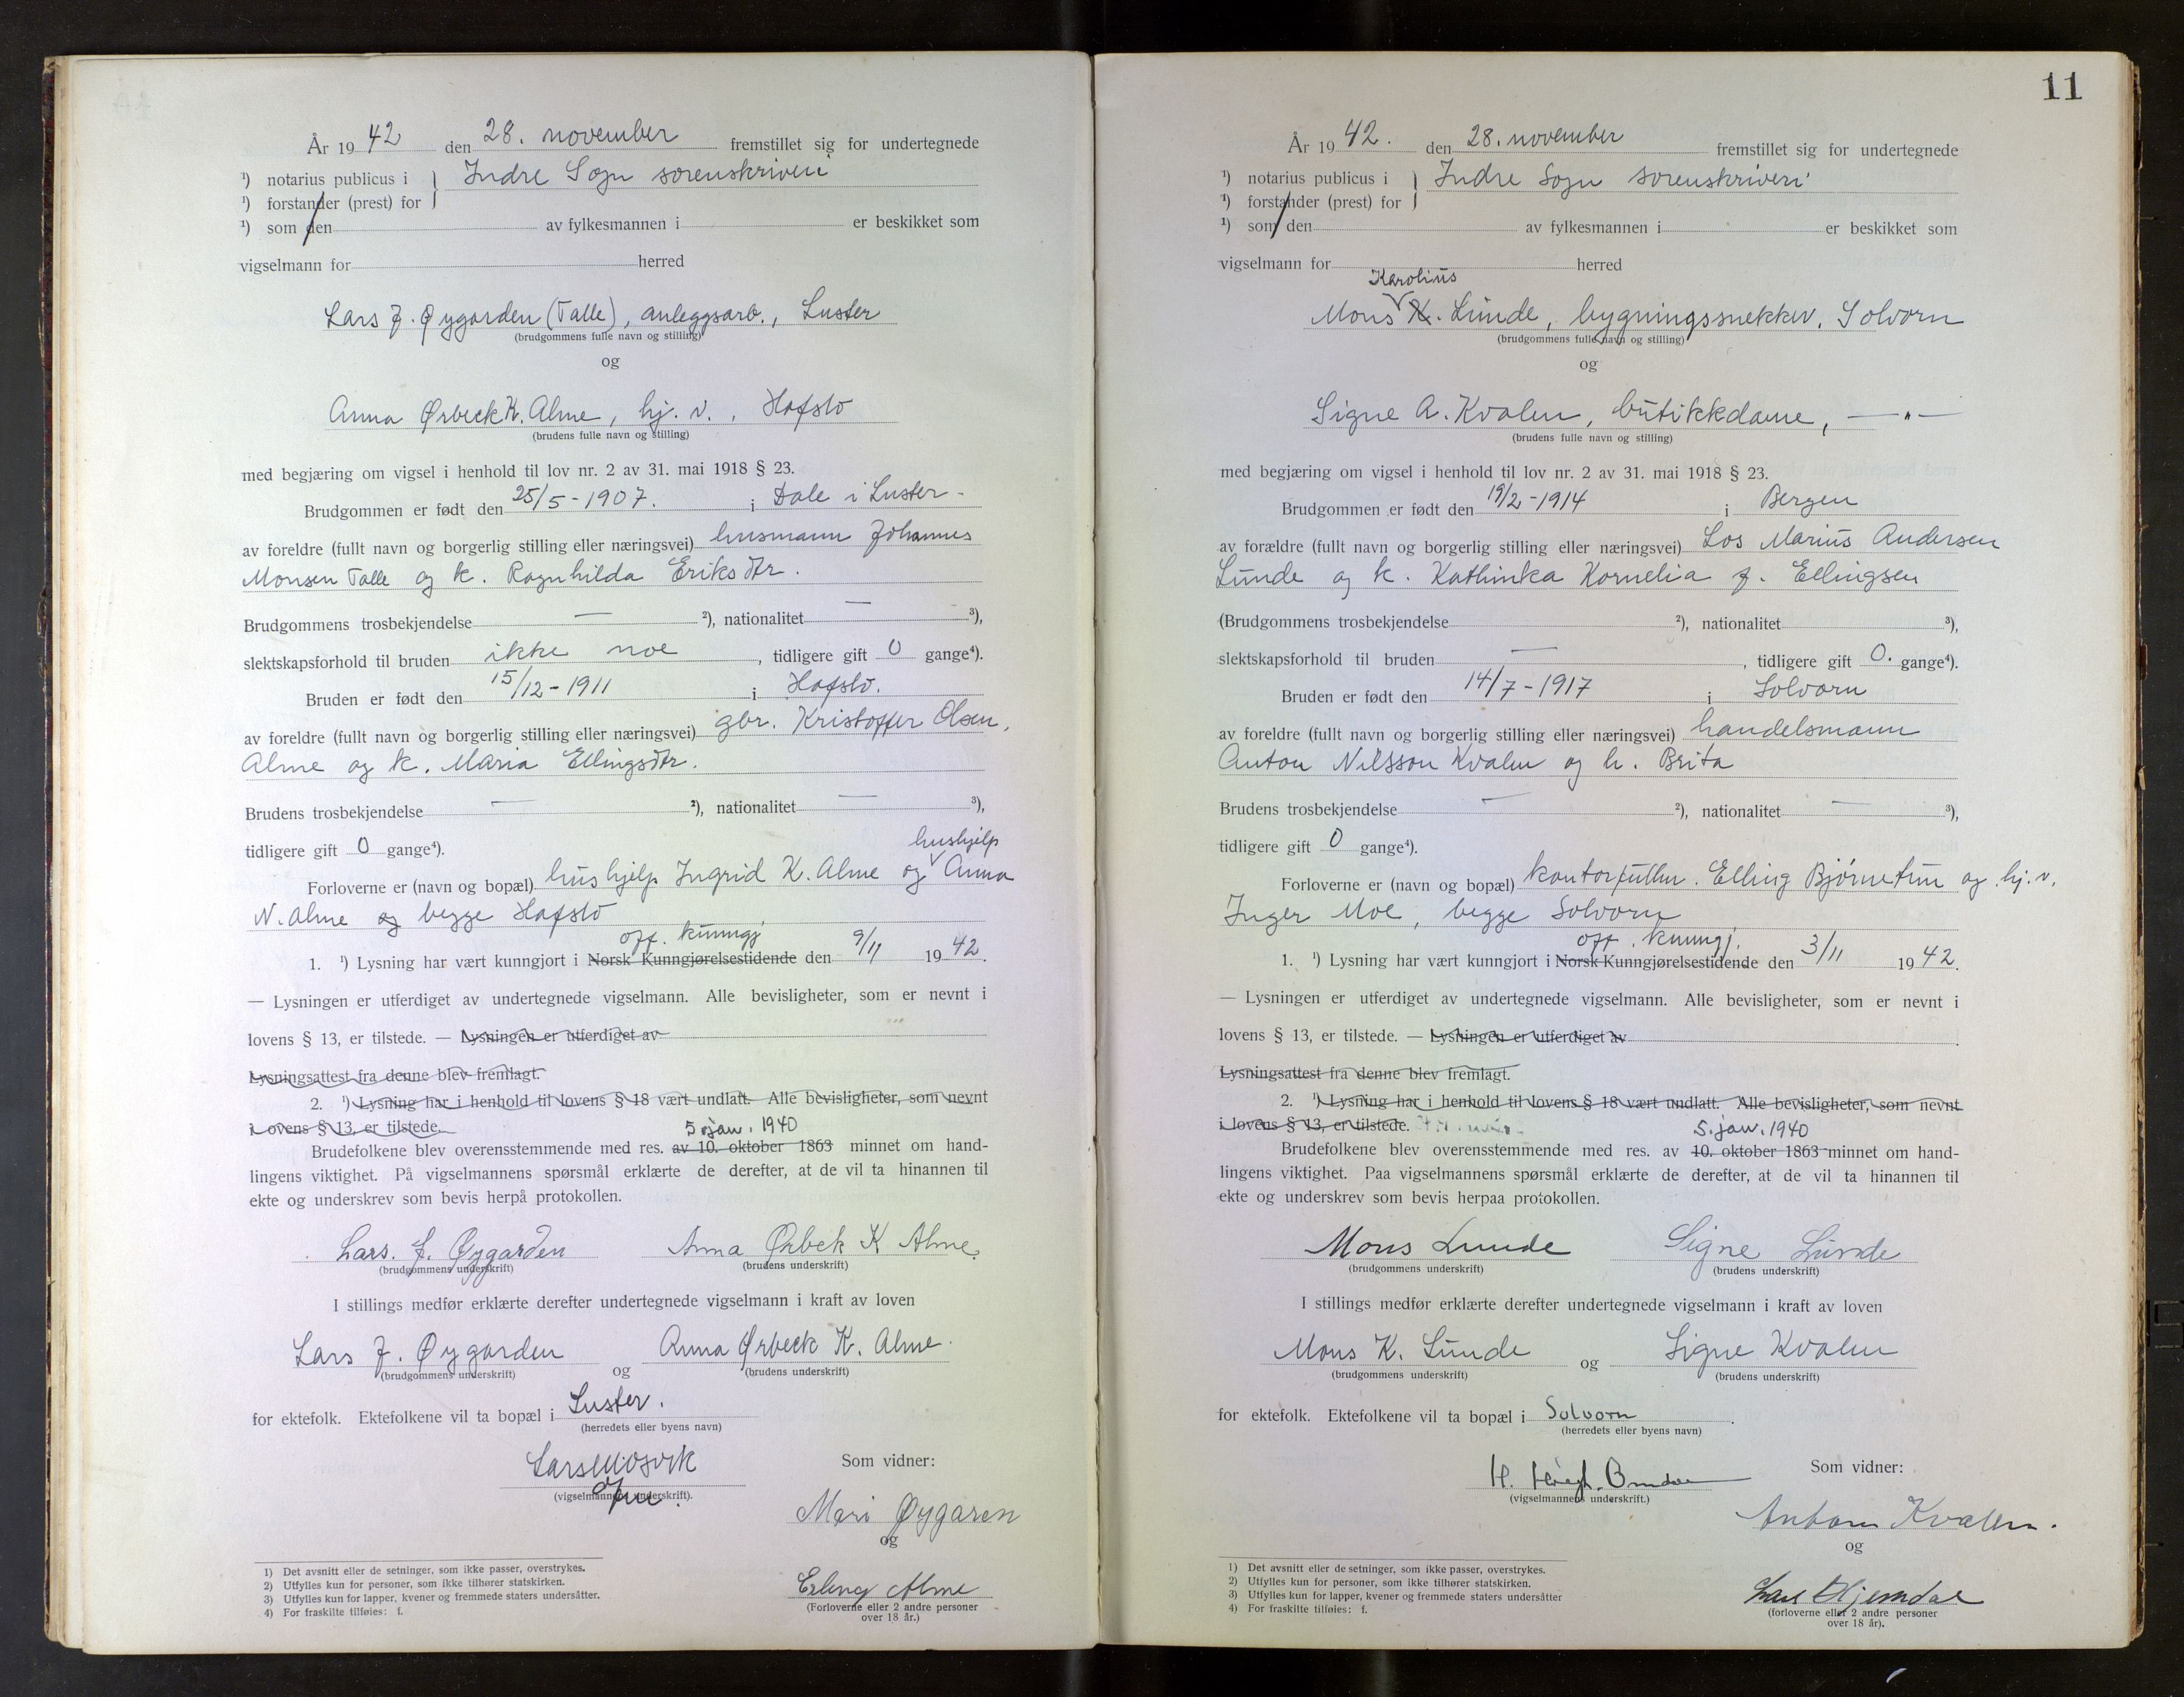 År 1942 den 28. november fremstillet sig for undertegnede
¹) notarius publicus i } Indre Sogn sorenskriveri
¹) forstander (prest) for
¹) som den av fylkesmannen i er beskikket som
vigselmann for herred
Lars J. Øygarden (Talle), anleggsarb., Luster
(brudgommens fulle navn og stilling)
og
Anna Ørbeck K. Alme, hj. v., Hafslo
(brudens fulle navn og stilling)
med begjæring om vigsel i henhold til lov nr. 2 av 31. mai 1918 § 23.
Brudgommen er født den 25/5-1907. i Dale i Luster
av foreldre (fullt navn og borgerlig stilling eller næringsvei) husmann Johannes
Monsen Talle og k. Ragnhilda Eriksdtr.
Brudgommens trosbekjendelse — ²), nationalitet — ³),
slektskapsforhold til bruden ikke noe, tidligere gift 0 gange⁴).
Bruden er født den 15/12-1911 i Hafslo.
av foreldre (fullt navn og borgerlig stilling eller næringsvei) gbr. Kristoffer Olsen,
Alme og k. Maria Ellingsdtr.
Brudens trosbekjendelse — ²), nationalitet — ³),
tidligere gift 0 gange⁴).
hushjelp
Forloverne er (navn og bopæl) hushjelp Ingrid K. Alme og Anna
N. Alme og begge Hafslo
off. kunngj
1. ¹) Lysning har vært kunngjort i Norsk Kunngjørelsestidende den 9/11 1942.
— Lysningen er utferdiget av undertegnede vigselmann. Alle bevisligheter, som er nevnt i
lovens § 13, er tilstede. — Lysningen er utferdiget av
Lysningsattest fra denne blev fremlagt.
2. ¹) Lysning har i henhold til lovens § 18 vært undlatt. Alle bevisligheter, som nevnt
i ovens § 13, er tilstede.
5 jan. 1940
Brudefolkene blev overensstemmende med res. av 10. oktober 1863 minnet om hand-
lingens viktighet. På vigselmannens spørsmål erklærte de derefter, at de vil ta hinannen til
ekte og underskrev som bevis herpå protokollen.
Lars. J. Øygarden Anna Ørbek K Alme.
(brudgommens underskrift) (brudens underskrift)
I stillings medfør erklærte derefter undertegnede vigselmann i kraft av loven
Lars J. Øygarden og Anna Ørbeck K. Alme.
(brudgommens underskrift) (brudens underskrift)
for ektefolk. Ektefolkene vil ta bopæl i Luster.
(herredets eller byens navn)
Som vidner:
(vigselmannens underskrift).
Mari Øygaren
og
Erling Alme
(Forloverne eller 2 andre personer
over 18 år.)
1) Det avsnitt eller de setninger, som ikke passer, overstrykes.
2) Utfylles kun for personer, som ikke tilhører statskirken.
3) Utfylles kun for lapper, kvener og fremmede staters undersåtter.
4) For fraskilte tilføies: f.
11
År 1942. den 28. november fremstillet sig for undertegnede
¹) notarius publicus i } Indre Sogn sorenskriveri
¹) forstander (prest) for
¹) som den av fylkesmannen i er beskikket som
vigselmann for herred
Karolius
Mons K. Lunde, bygningssnekker, Solvorn
(brudgommens fulle navn og stilling)
og
Signe A. Kvalen, butikkdame, —"—
(brudens fulle navn og stilling)
med begjæring om vigsel i henhold til lov nr. 2 av 31. mai 1918 § 23.
Brudgommen er født den 19/2-1914 i Bergen
av forældre (fullt navn og borgerlig stilling eller næringsvei) Los Marius Andersen
Lunde og k. Kathinka Kornelia f. Ellingsen
(Brudgommens trosbekjendelse ²), nationalitet ³),
slektskapsforhold til bruden —, tidligere gift 0. gange⁴).
Bruden er født den 14/7-1917 i Solvorn
av foreldre (fullt navn og borgerlig stilling eller næringsvei) handelsmann
Anton Nilsson Kvalen og h. Brita
Brudens trosbekjendelse — ²), nationalitet — ³),
tidligere gift 0 gange⁴).
Forloverne er (navn og bopæl) Elling Bjørnetun og hj. v.
Inger Moe, begge Solvorn
off. kunngj.
1. ¹) Lysning har vært kunngjort i Norsk Kunngjørelsestidende den 3/11 1942.
— Lysningen er utferdiget av undertegnede vigselmann. Alle bevisligheter, som er nevnt i
lovens § 13, er tilstede. — Lysningen er utferdiget av
Lysningsattest fra denne blev fremlagt.
2. ¹) Lysning har i henhold til lovens § 18 vært undlatt. Alle bevisligheter, som nevnt
i lovens § 13, er tilstede.
5. jan. 1940
Brudefolkene blev overensstemmende med res. av 10. oktober 1863 minnet om hand-
lingens viktighet. Paa vigselmannens spørsmål erklærte de derefter, at de vil ta hinannen til
ekte og underskrev som bevis herpaa protokollen.
Mons Lunde Signe Lunde
(brudgommens underskrift) (brudens underskrift)
I stillings medfør erklærte derefter undertegnede vigselmann i kraft av loven
Mons K. Lunde og Signe Kvalen
(brudgommens underskrift) (brudens underskrift)
for ektefolk. Ektefolkene vil ta bopæl i Solvorn.
(herredets eller byens navn)
H.
Som vidner:
(vigselmannens underskrift.)
Anton Kvalen.
og
(forloverne eller 2 andre personer
over 18 år).
1) Det avsnitt eller de setninger, som ikke passer, overstrykes.
2) Utfylles kun for personer, som ikke tilhører statskirken.
3) Utfylles kun for lapper, kvener og fremmede staters undersåtter
4) For fraskilte tilføies: f.